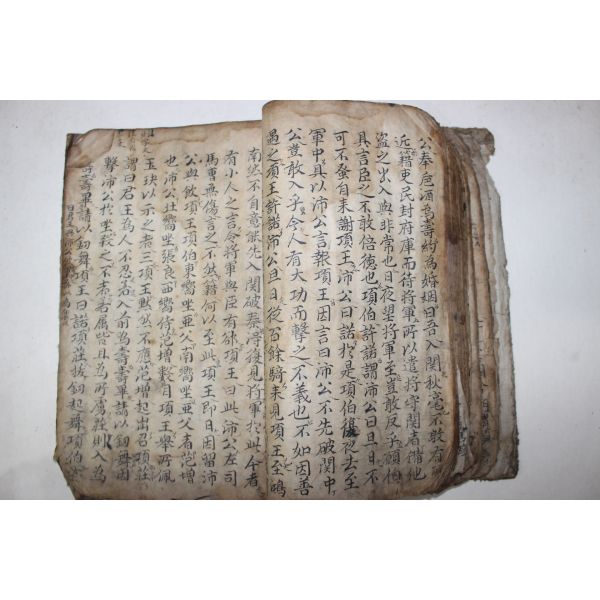 公奉卮酒為壽約為婚姻曰吾入關秋毫不敢有
近籍吏民封府庫而待將軍所以遣將守關者備他
盜之出入與非常也日夜望將軍至豈敢反乎願伯
具言臣之不敢倍德也項伯許諾謂沛公曰旦日不
可不蚤自来謝項王沛公曰諾於是項伯復夜去至
軍中具以沛公言報項王因言曰沛公不先破關中
公豈敢入乎今人有大功而擊之不義也不如因善
遇之項王許諾沛公旦日從百餘騎来見項王至鴻
南然不自意能先入關破秦得復見將軍於此今者
有小人之言令將軍與臣有郤項王曰此沛公左司
馬曹無傷言之不然籍何以至此項王即日因留沛
公與飲項王項伯東嚮坐亜父南嚮坐亜父者范增
也沛公北嚮坐張良西嚮侍范增數目項王舉所佩
玉玦以示之者三項王默然不應范增起出召項莊
謂曰君王為人不忍若入前為壽壽畢請以釼舞因
擊沛公於坐殺之不者若屬皆且為所虜莊則入為
壽壽畢請以釼舞項王曰諾項莊拔釼起舞項伯